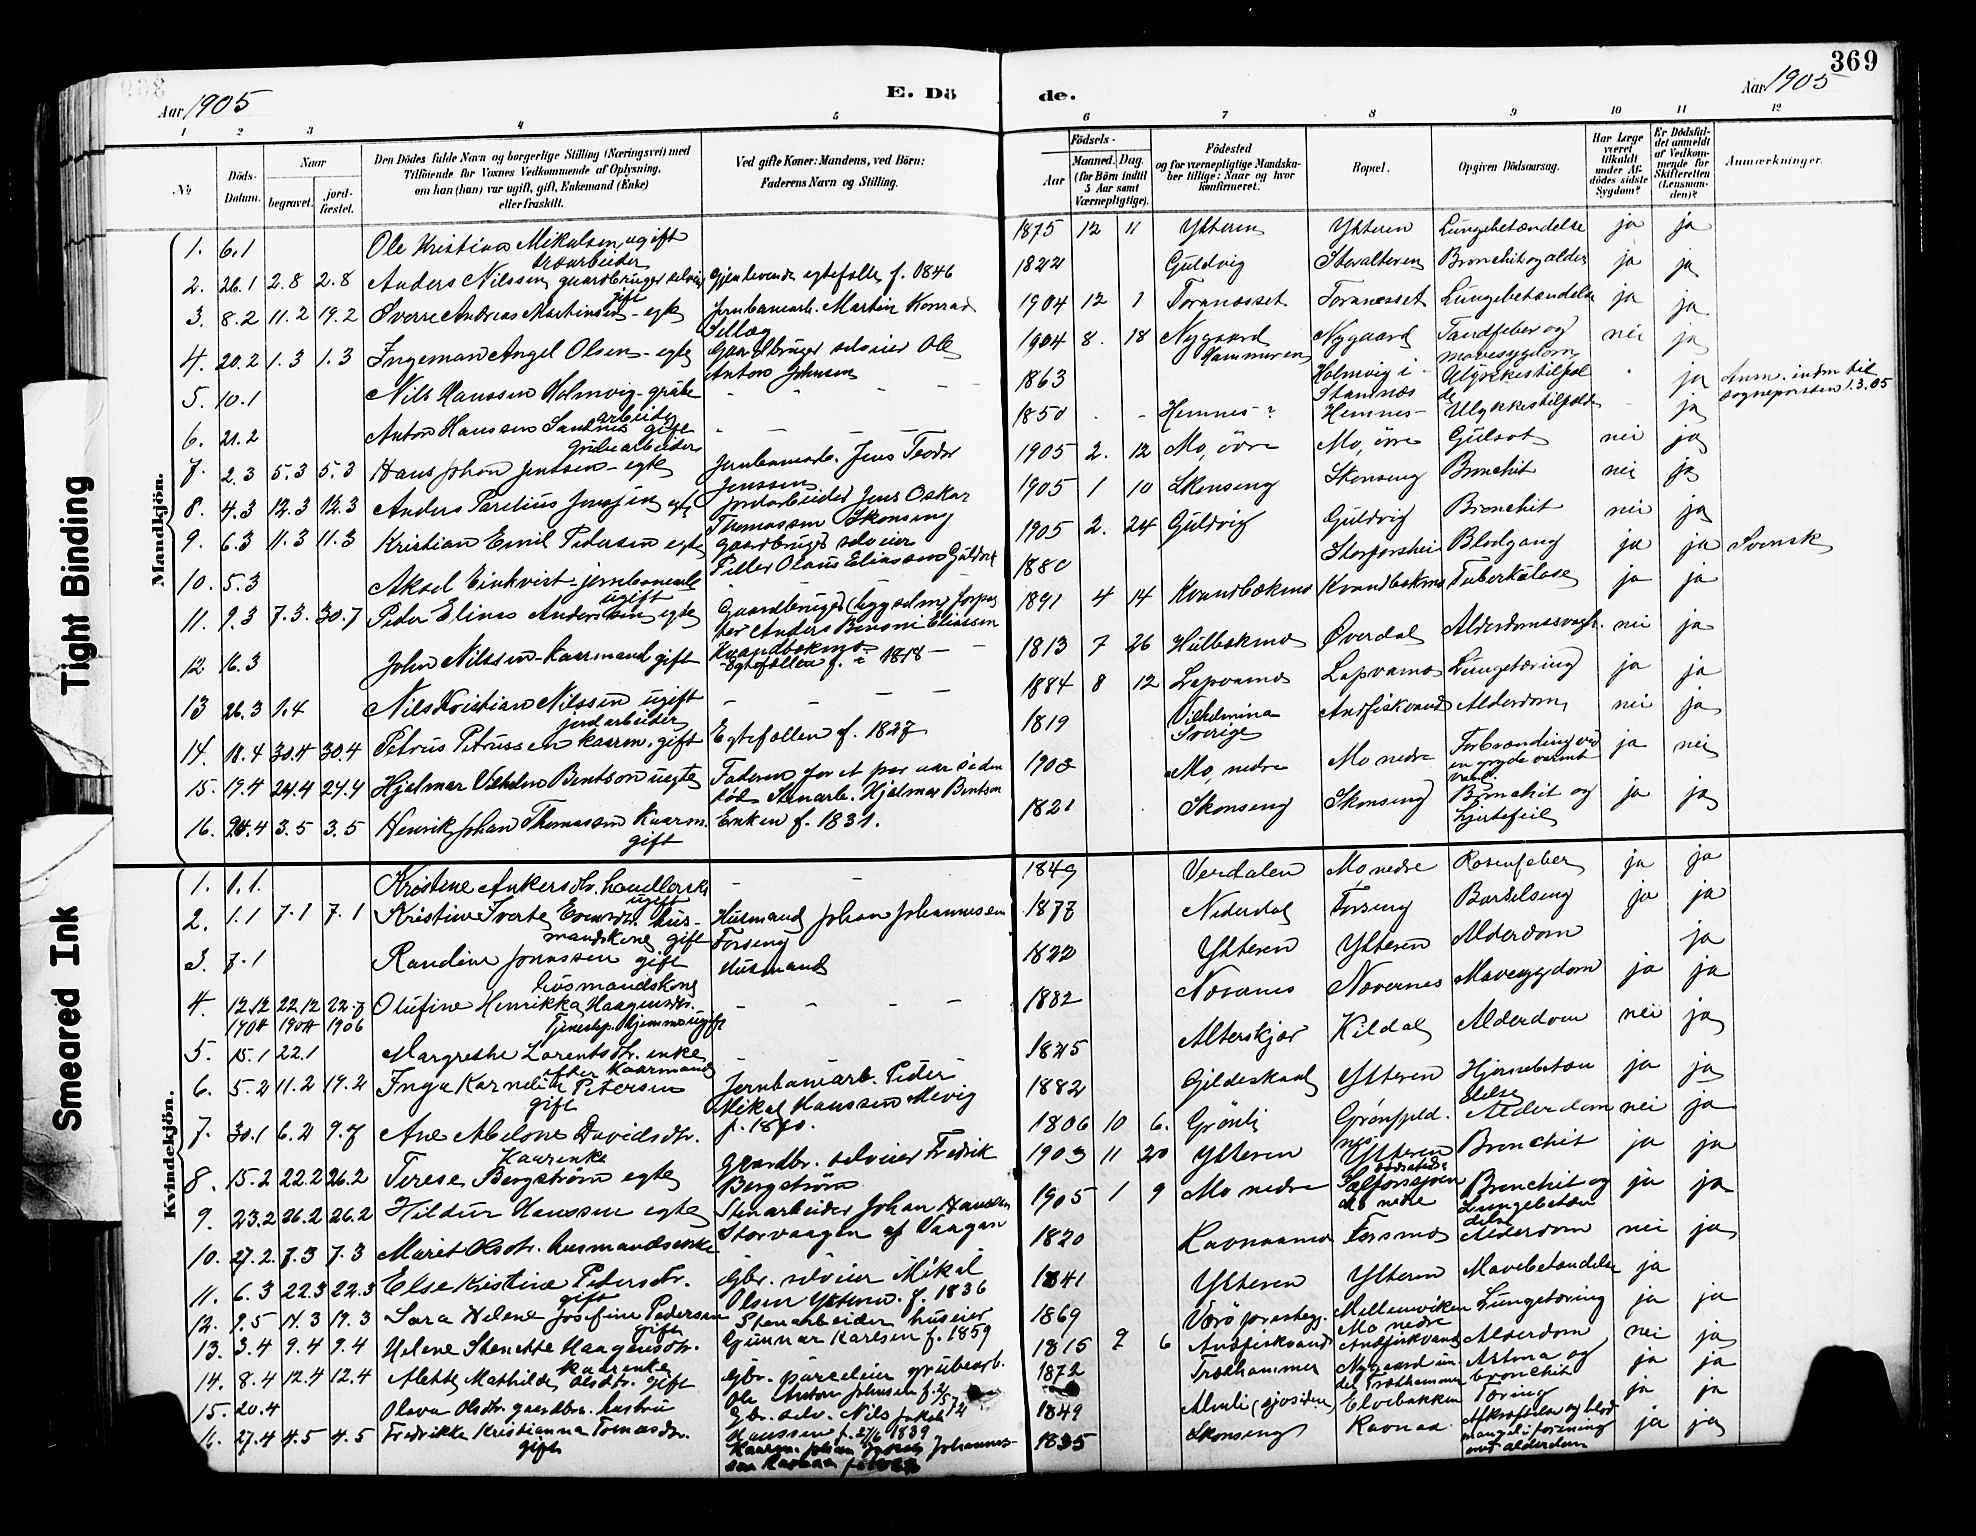 369
Aar 1905
E. Dö
de.
Aar 1905
1 2 3 4 5 6 7 8 9 10 11 12
No
Döds-Datum.
Naar
begravet.
jord-fæstet.
Den Dödes fulde Navn og borgerlige Stilling (Næringsvei) med
Tilföiende for Voxnes Vedkommende af Oplysning,
om han (hun) var ugift, gift, Enkemand (Enke)
eller fraskilt.
Ved gifte Koner: Mandens, ved Börn:
Faderens Navn og Stilling.
Födsels-
Aar
Maaned. Dag.
(for Börn indtil
5 Aar samt
Værnepligtige).
Födested
og for værnepligtige Mandska-
ber tillige: Naar og hvor
konfirmeret.
Bopæl.
Opgiven Dödsaarsag.
Har Læge
været
tilkaldt
under Af-
dödes sidste
Sygdom?
Er Dödsfal-
det anmeldt
af Vedkom-
mende for
Skifteretten
(Lensman-
den)?
Anmærkninger.
Mandkjön.
1. 6.1 Ole Kristian Mikalsen ugift 1875 12 11 Ytteren Ytteren Lungebetændelse ja ja
2. 26.1 2.8 2.8 Anders Nilssen gaardbruger selveier gift Gjenlevende egtefolle f. 1846 1822 Guldvig Storalteren Bronchit og alder ja ja
3. 8.2 11.2 19.2 Sverre Andreas Martinsen - egte Jernbanearb. Martin Konrad 1904 12 1 Toranesset Toranesset Lungebetændelse ja ja
4. 20.2 1.3 1.3 Ingeman Angel Olsen - egte Gaardbruger selveier Ole Anton Johnsen 1904 8. 18 Nygaard Hammeren Nygaard Tandfeber og mavesygdom nei ja
5. 10.1 Nils Hanssen Holmvig - grube arbeider - - 1863 Holmvig i Stamnæs Ulykkestilfælde ja Anm. indm til sogneprsten 1.3.05
6. 21.2 Anton Hanssen Sandnes gift grubearbeider - - 1850 Hemnes ? Hemnes - Ulykkestilfælde - ja
7. 2.3 5.3 5.3 Hans Johan Jenssen - egte Jernbanearb. Jens Teodor Jenssen 1905 2. 12 Mo, övre Mo, övre Gulsot nei ja
8. 4.3 12.3 12.3 Anders Parelius egte Jordarbeider Jens Oskar Thomassen Skonseng 1905 1 10 Skonseng Skonseng Bronchit nei ja
9. 6.3 11.3 11.3 Kristian Emil Pedersen egte Gaardbruger selveier Petter Olaus Eliassen Guldvik 1905 2. 24 Guldvig Guldvig Bronchit nei ja
10. 5.3 Aksel - jernbanearb ugift 1880 Storforshei Blodgang ja ja Svensk
11. 9.3 7.3. 30.7 Peder Elines Anderssen egte Gaardbruger (bygselm) forpagter Anders Benoni Eliassen Kvandbækmo 1891 4 14 Kvandbækmo Kvandbækmo Tuberkulose ja ja
12. 16.3 John Nilssen - Kaarmand gift - Egtefollen f. i 1818 - 1813 7 26 Hulbækmo Øverdal Alderdomssvagh. nei ja
13 26.3 1.4 Nils Kristian Nilssen ugift jordarbeider - - 1884 8 12 Lapvamo Lapvamo Lungetæring ja ja
14. 18.4 30.4 30.4 Petrus Petrussen kaarm. gift Egtefollen f. 1827 1819 Vilhelmina Sverige Andfiskvand Alderdom, nei ja
15. 17.4 24.4 24.4 Hjalmar Vilhelm Bentson uegte Faderen for et par aar siden död Stenarb. Hjalmar Bentson 1903 Mo, nedre Mo nedre Forbrænding ved en gryde varmt vand. ja nei
16. 24.4 3.5 3.5 Henrik Johan Thomassen Kaarm. gift Enken f. 1831. 1821 Skonseng Skonseng Bronchit og hjertefeil ja ja
Kvindekjön.
1. 1.1. Kristine Ankersdtr. handlerske ugift - - 1849 Verdalen Mo nedre Rosenfeber ja ja
2. 1.1 7.1 7.1 Kristine Sverte husmandskone gift Husmand Johan Johannesen Forseng 1877 Nederdal Forseng Barselseng ja ja
3. 7.1 Randine Jonassen gift husmandskone Husmand 1822 Ytteren Ytteren Alderdom ja
4. 12.12 1904 22.12 1904 22.7 1906 Olufine Henrikka Haagensdtr. - - - - 1882 Nævernes Mavesygdom ja ja
5. 15.1 22.1 Margrethe Larentsdtr. enke efter Kaarmand - 1825 Alterskjær Kildal Alderdom nei ja
6. 5.2 11.2 19.2 Inga Karneliæ Petersen gift Jernbanearb. Peder Mikal Hanssen Mevig f. 1870. 1882 Gildeskaal Ytteren Hjernebetændelse ja ja
7. 30.1 6.2 9.7 Ane Abelone Davidsdtr. Kaarenke 1806 10 6. Grönli Alderdom nei ja
8. 15.2 22.2 26.2 Terese Bergström egte Gaardbr. selveier Fredrik Bergström 1903 11 20 Ytteren Ytteren Bronchit ja ja
9. 23.2 26.2 26.2 Hildur Hanssen egte Stenarbeider Johan Hanssen Storvaagen af Vaagan 1905 1 9 Mo nedre Mo nedre Bronchit og Lungebetændelse ja ja
10. 27.2 7.3 7.3 Marit Olsdtr. husmandsenke 1820 Ravnaamo Forsmo Alderdom nei ja
11. 6.3 22.3 22.3 Else Kristine Petersdtr. gift Gbr. selveier Mikal Olsen Ytteren. f. 1836 1841 Ytteren Ytteren Mavebetændelse ja
12. 9.5 17.3 19.3 Sara Helene Josefine Pedersen gift Stenarbeider huseier Gunnar Karlsen f. 1859 1869 Værö prestegj. Mellemviken Mo nedre Lungetæring ja ja
13. 3.4 9.4 9.4 Helene Stenette Haagensdtr. Kaarenke 1815 9 6 Andfiskvand Andfiskvand Alderdom nei ja
14. 8.4 12.4 12.4 Alette Mathilde Olsdtr. gift Gbr. parceleier grubearb. Ole Anton Johnsen 1872 Nygaard Astma og bronchit ja ja
15. 20.4 Olava Olsdtr. gaardbr. hustru Gbr. selv. Nils Jakob Hanssen f. 1839 1849 Elvebakken Tæring ja ja
16. 27.4 4.5 4.5 Fredrikke Kristianna Tomasdtr. gift Kaarm. Johan Johannessen 1835 Skonseng Ravnaa Afkræftelse og blodmangel i forening med alderdom ja ja
Tight Binding
Smeared Ink